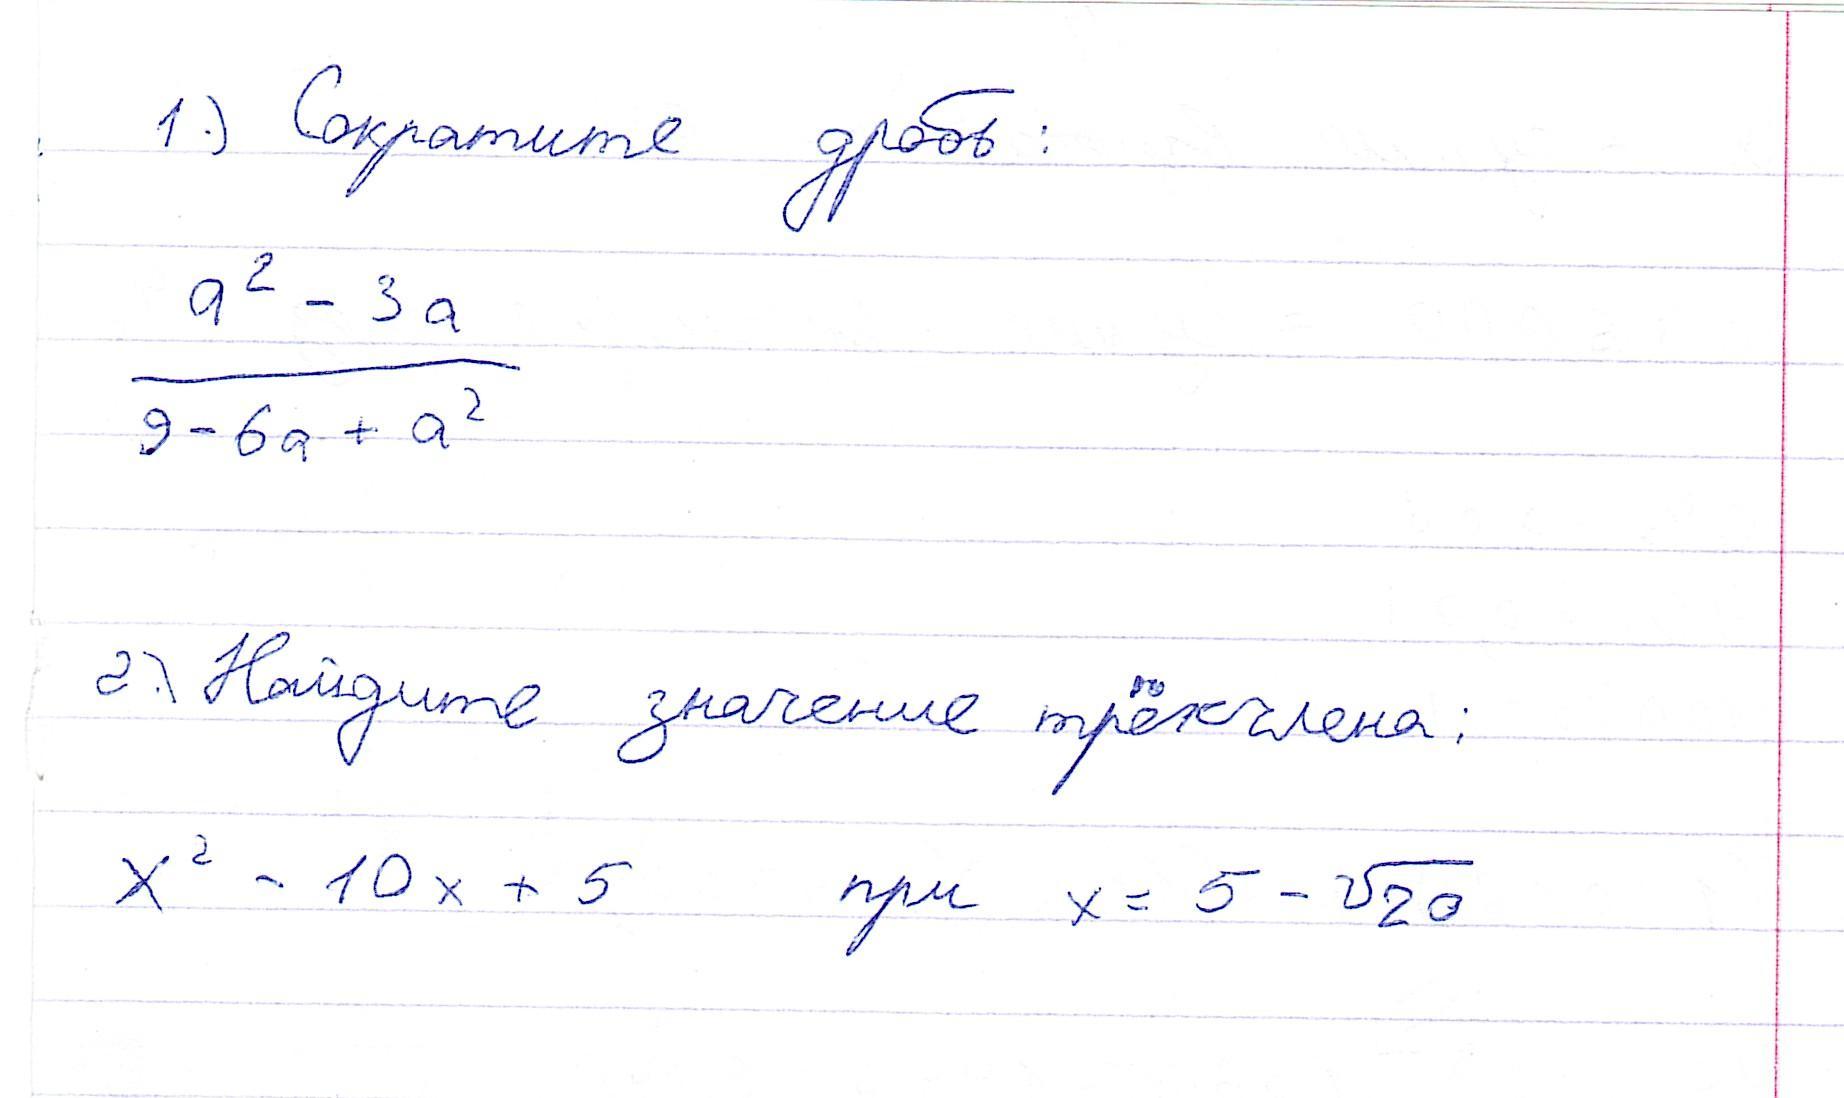 1.) Сократите дробь:
a² - 3a
9 - 6a + a²
2.) Найдите значение трёхчлена:
x² - 10x + 5 при x = 5 - √20